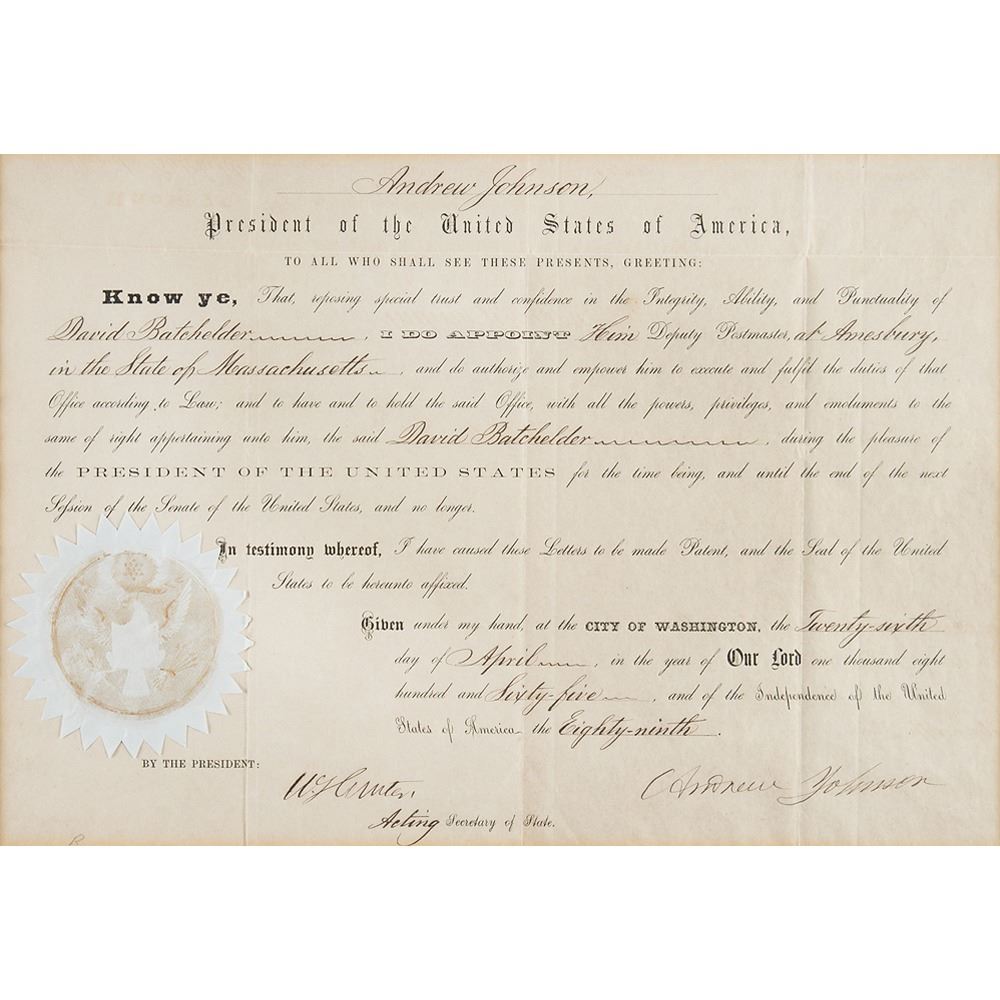 Andrew Johnson,
President of the United States of America,
TO ALL WHO SHALL SEE THESE PRESENTS, GREETING:
Know ye, That, reposing special trust and confidence in the Integrity, Ability, and Punctuality of
David Batchelder, I DO APPOINT Him Deputy Postmaster, at Amesbury,
in the State of Massachusetts, and do authorize and empower him to execute and fulfil the duties of that
Office according to Law; and to have and to hold the said Office, with all the powers, privileges, and emoluments to the
same of right appertaining unto him, the said David Batchelder, during the pleasure of
the PRESIDENT OF THE UNITED STATES for the time being, and until the end of the next
Session of the Senate of the United States, and no longer.
In testimony whereof, I have caused these Letters to be made Patent, and the Seal of the United
States to be hereunto affixed.
Given under my hand, at the CITY OF WASHINGTON, the Twenty-sixth
day of April, in the year of Our Lord one thousand eight
hundred and Sixty-five, and of the Independence of the United
States of America the Eighty-ninth.
BY THE PRESIDENT:
W Hunter, Andrew Johnson
Acting Secretary of State.